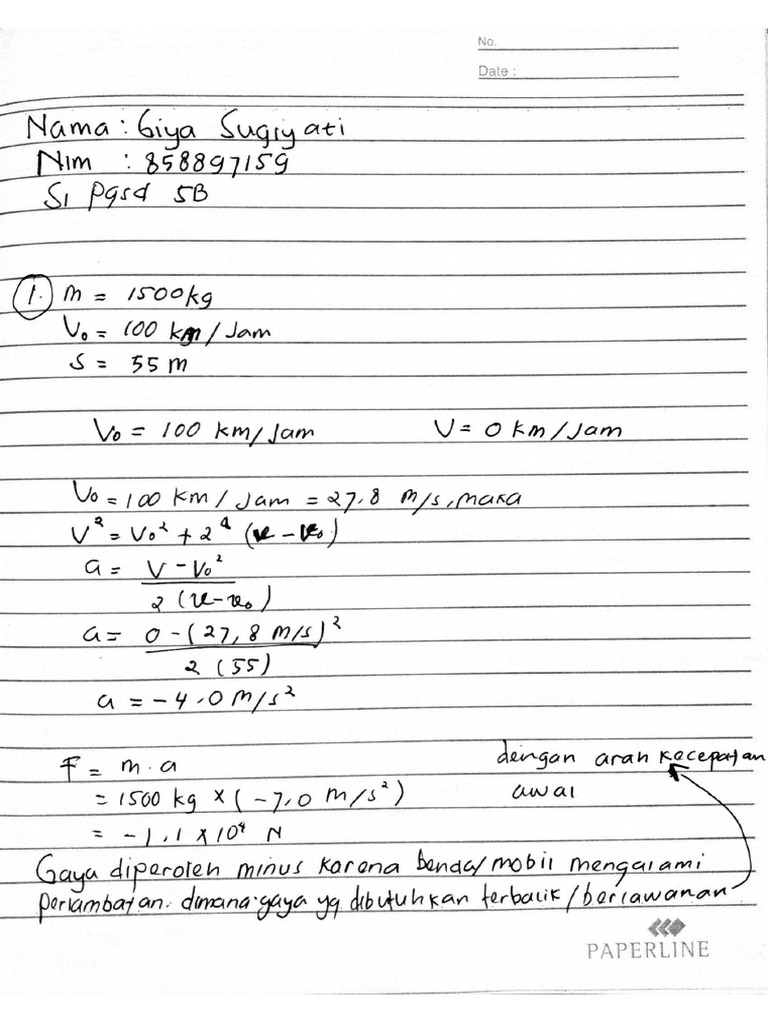 No.
Date :
Nama : Giya Sugiyati
Nim : 858897159
S1 Pgsd 5B
1. m = 1500 kg
V₀ = 100 km/Jam
S = 55 m
V₀ = 100 km/Jam V = 0 km/Jam
V₀ = 100 km/Jam = 27,8 m/s, maka
V² = V₀² + 2a (x - x₀)
a = V - V₀²
2 (x - x₀)
a = 0 - (27,8 m/s)²
2 (55)
a = -4,0 m/s²
F = m . a
= 1500 kg × (-7,0 m/s²)
= -1,1 × 10⁴ N
Gaya diperoleh minus karena benda/mobil mengalami
perlambatan. dimana gaya yg dibutuhkan terbalik/berlawanan
dengan arah kecepatan
awal
PAPERLINE